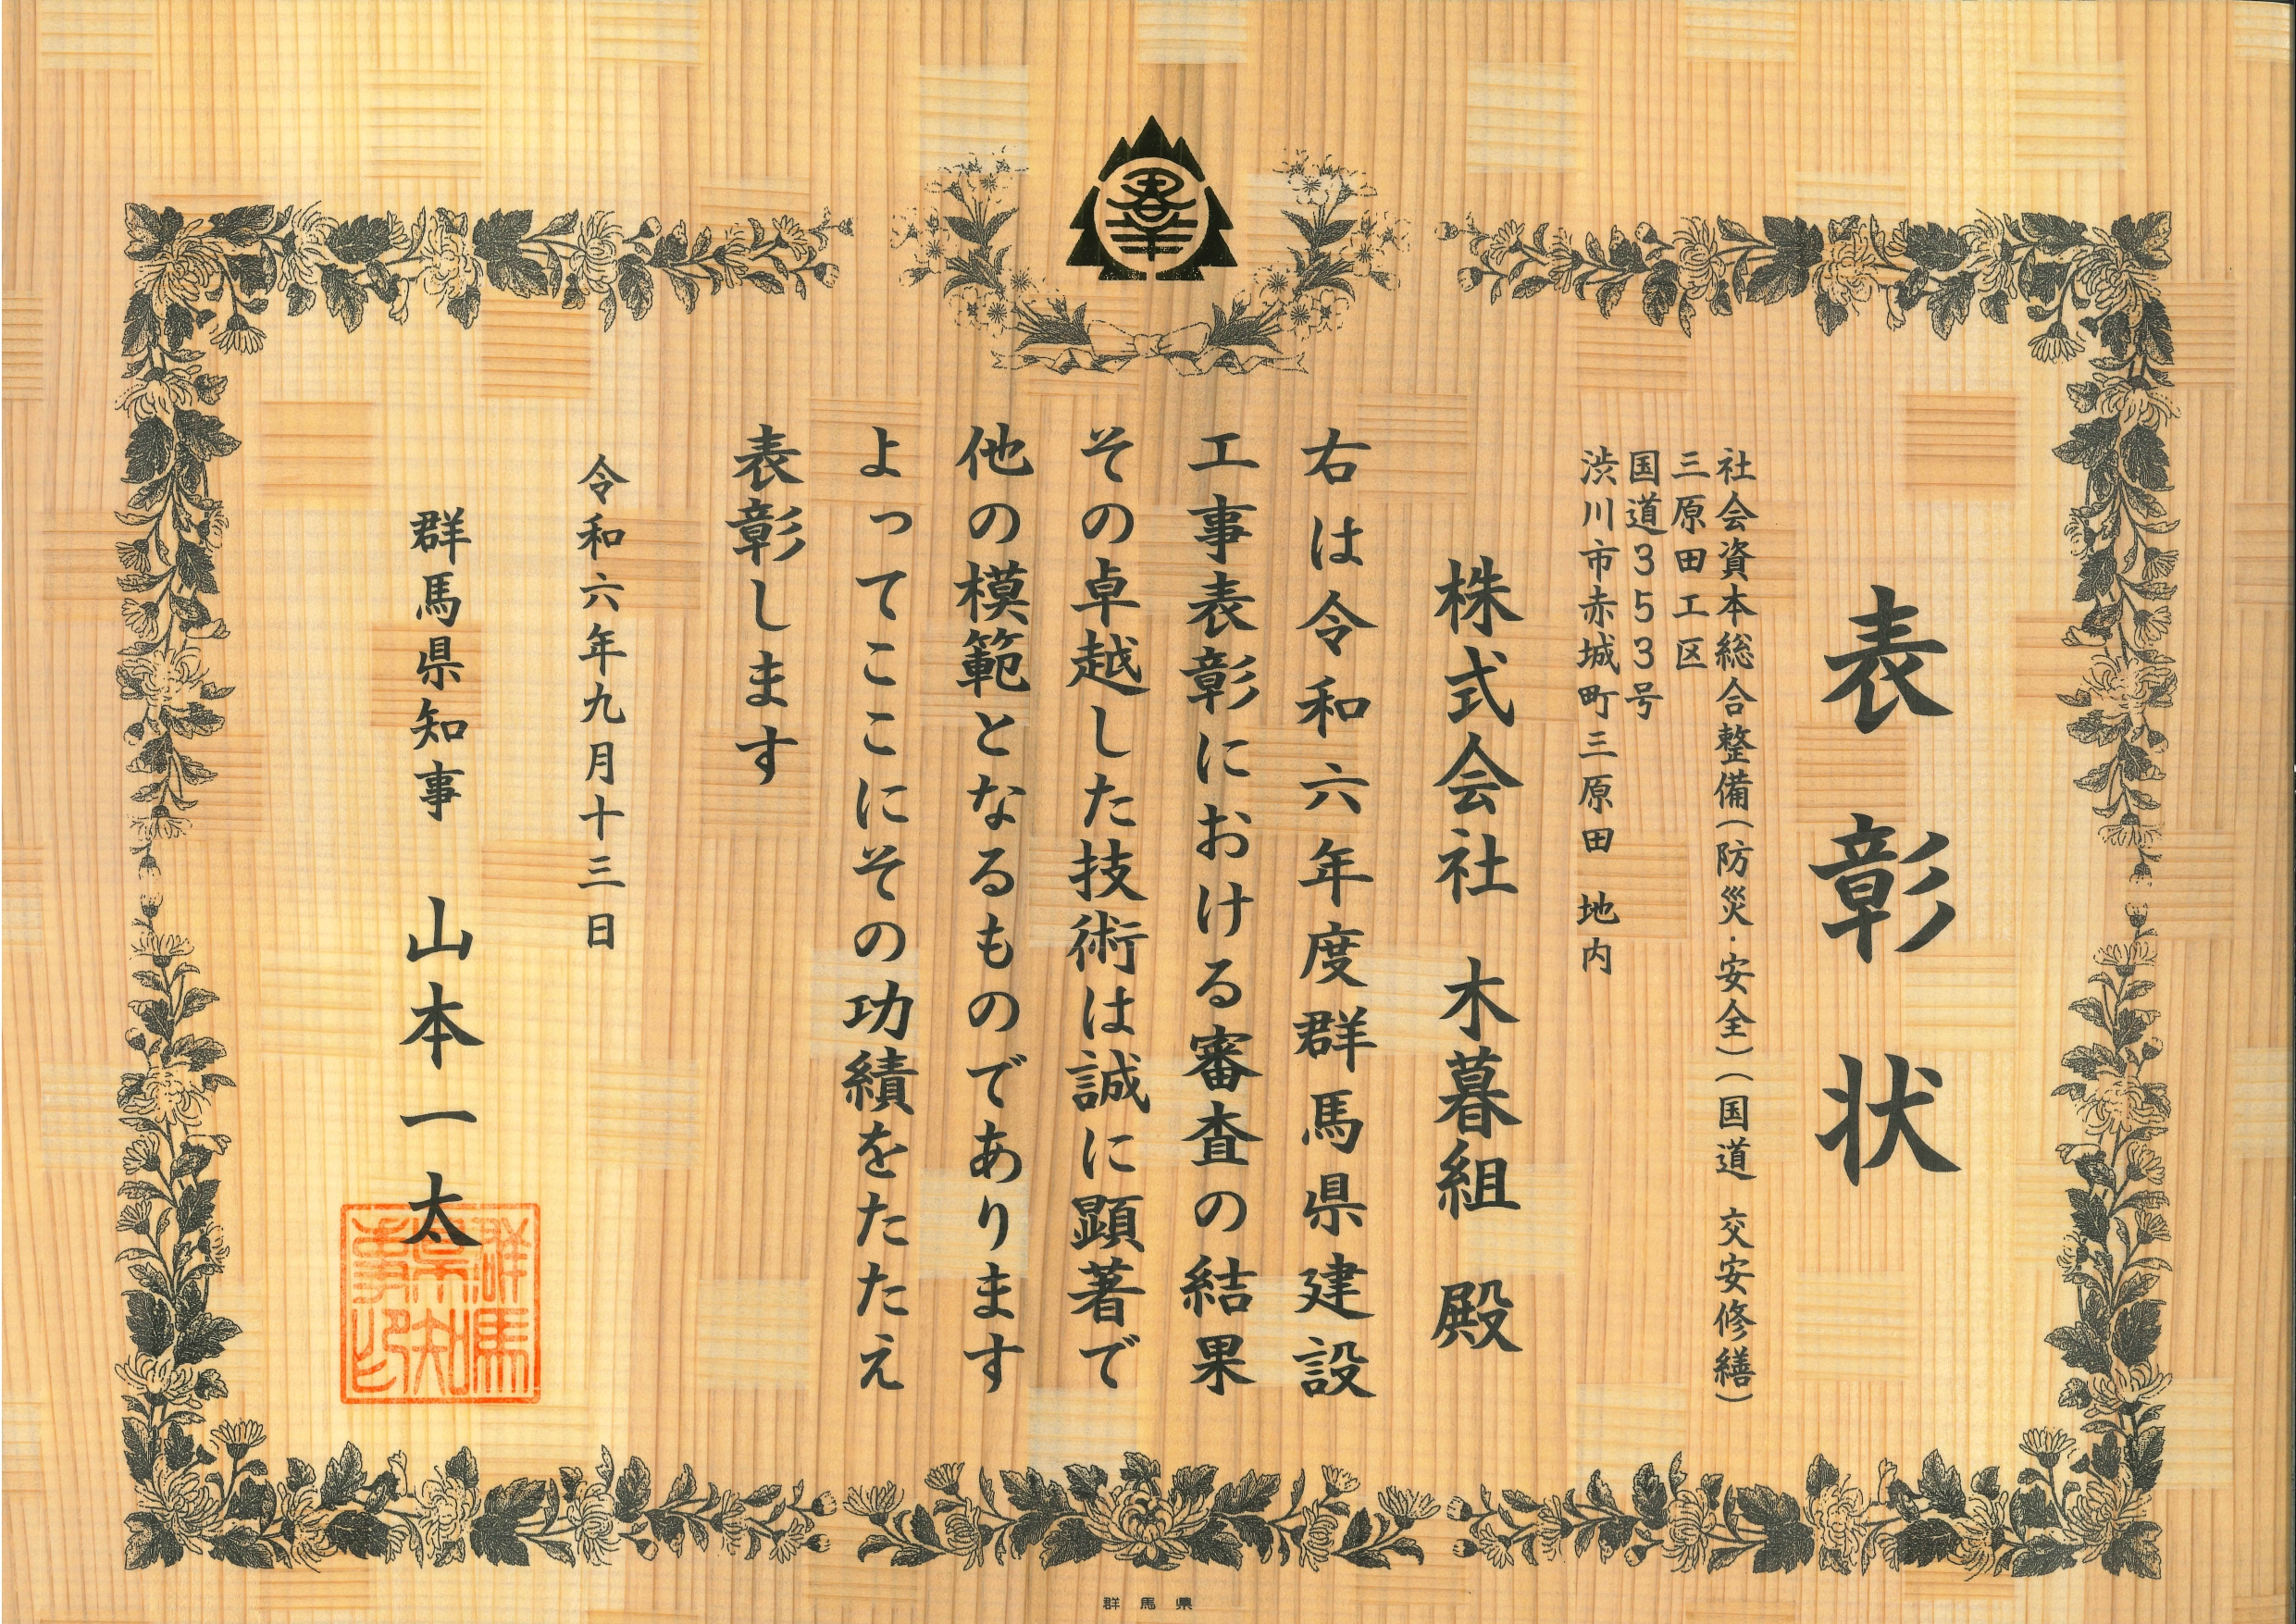 表彰状
社会資本総合整備(防災・安全)(国道 交安修繕)
三原田工区
国道353号
渋川市赤城町三原田 地内
株式会社 木暮組 殿
右は令和六年度群馬県建設
工事表彰における審査の結果
その卓越した技術は誠に顕著で
他の模範となるものであります
よってここにその功績をたたえ
表彰します
令和六年九月十三日
群馬県知事 山本一太
群馬
県知
事印
群馬県